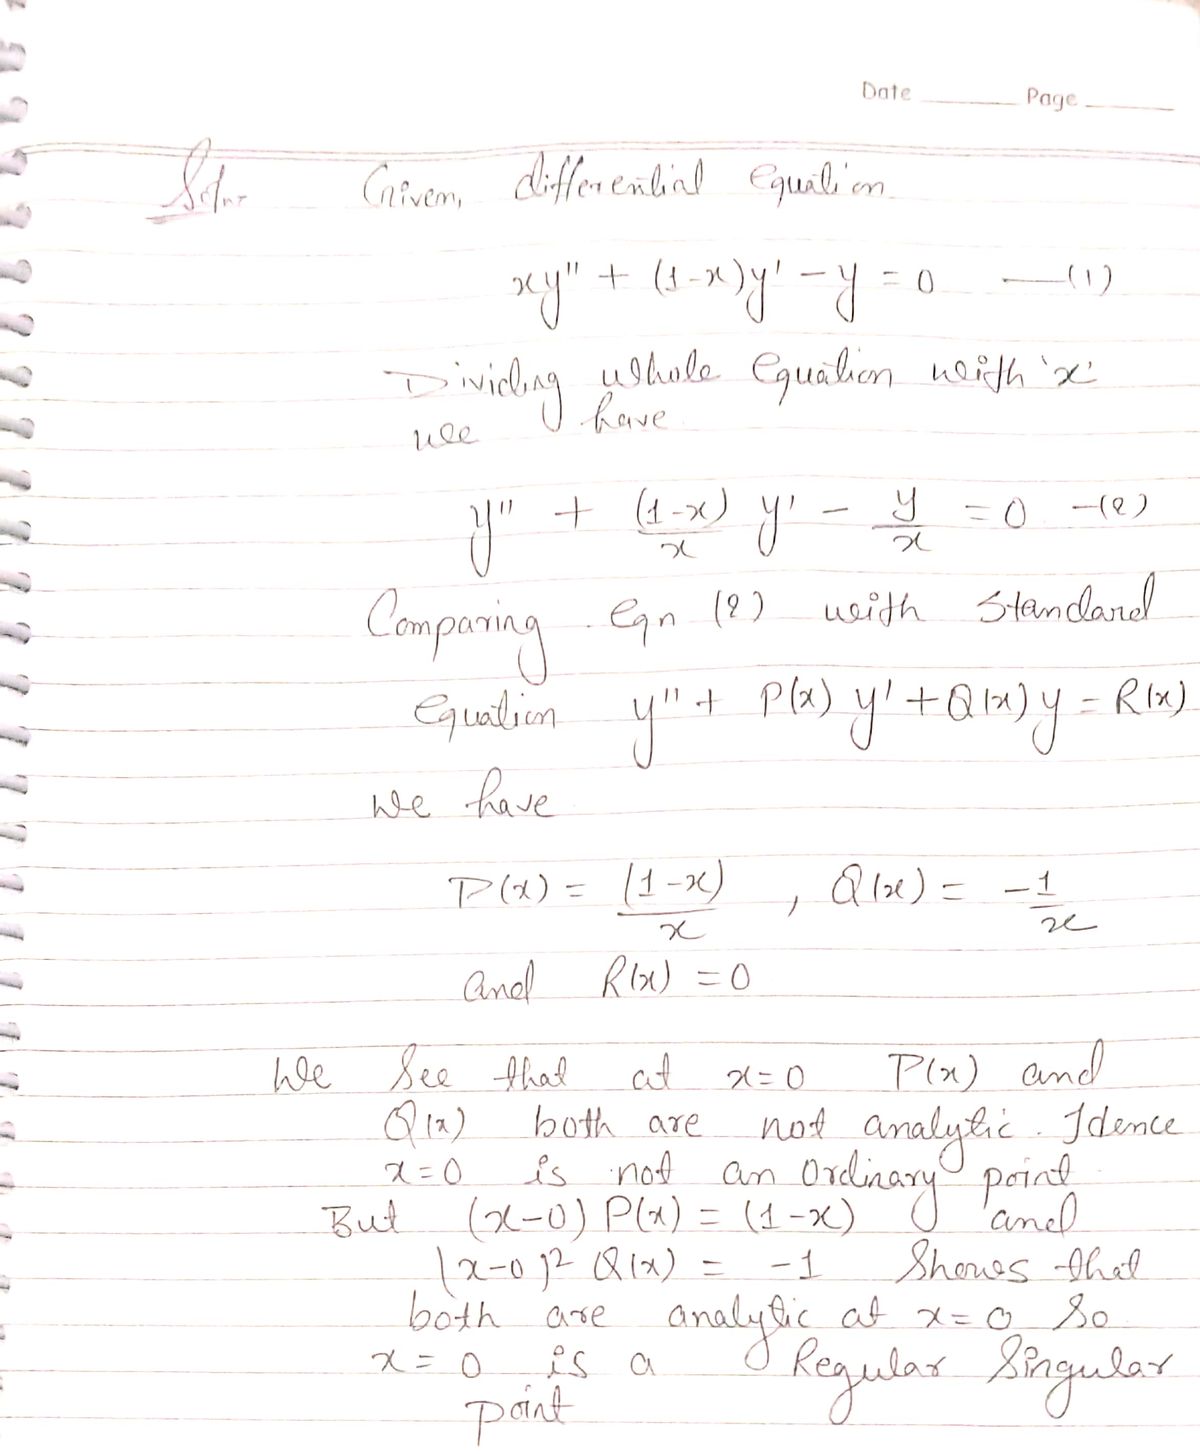 Date Page
Soln- Given, differential equation
xy'' + (1-x)y' - y = 0 —(1)
Dividing whole equation with 'x'
we have
y'' + (1-x)/x y' - y/x = 0 -(2)
Comparing eqn (2) with standard
equation y'' + P(x) y' + Q(x) y = R(x)
we have
P(x) = (1-x)/x , Q(x) = -1/x
and R(x) = 0
We see that at x=0 P(x) and
Q(x) both are not analytic. Hence
x=0 is not an ordinary point
But (x-0) P(x) = (1-x) and
(x-0)² Q(x) = -1 Shows that
both are analytic at x=0 So
x=0 is a Regular Singular
point